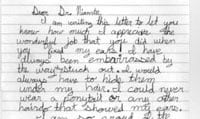 Dear Dr.
I am writing this letter to let you
know how much I appreciate the
wonderful job that you did when
you fixed my ears! I have
always been embarrassed by
the way they stuck out. I would
always have to hide them
under my hair. I could never
wear a ponytail or any other
hairdo that showed my ears.
I am so proud of the